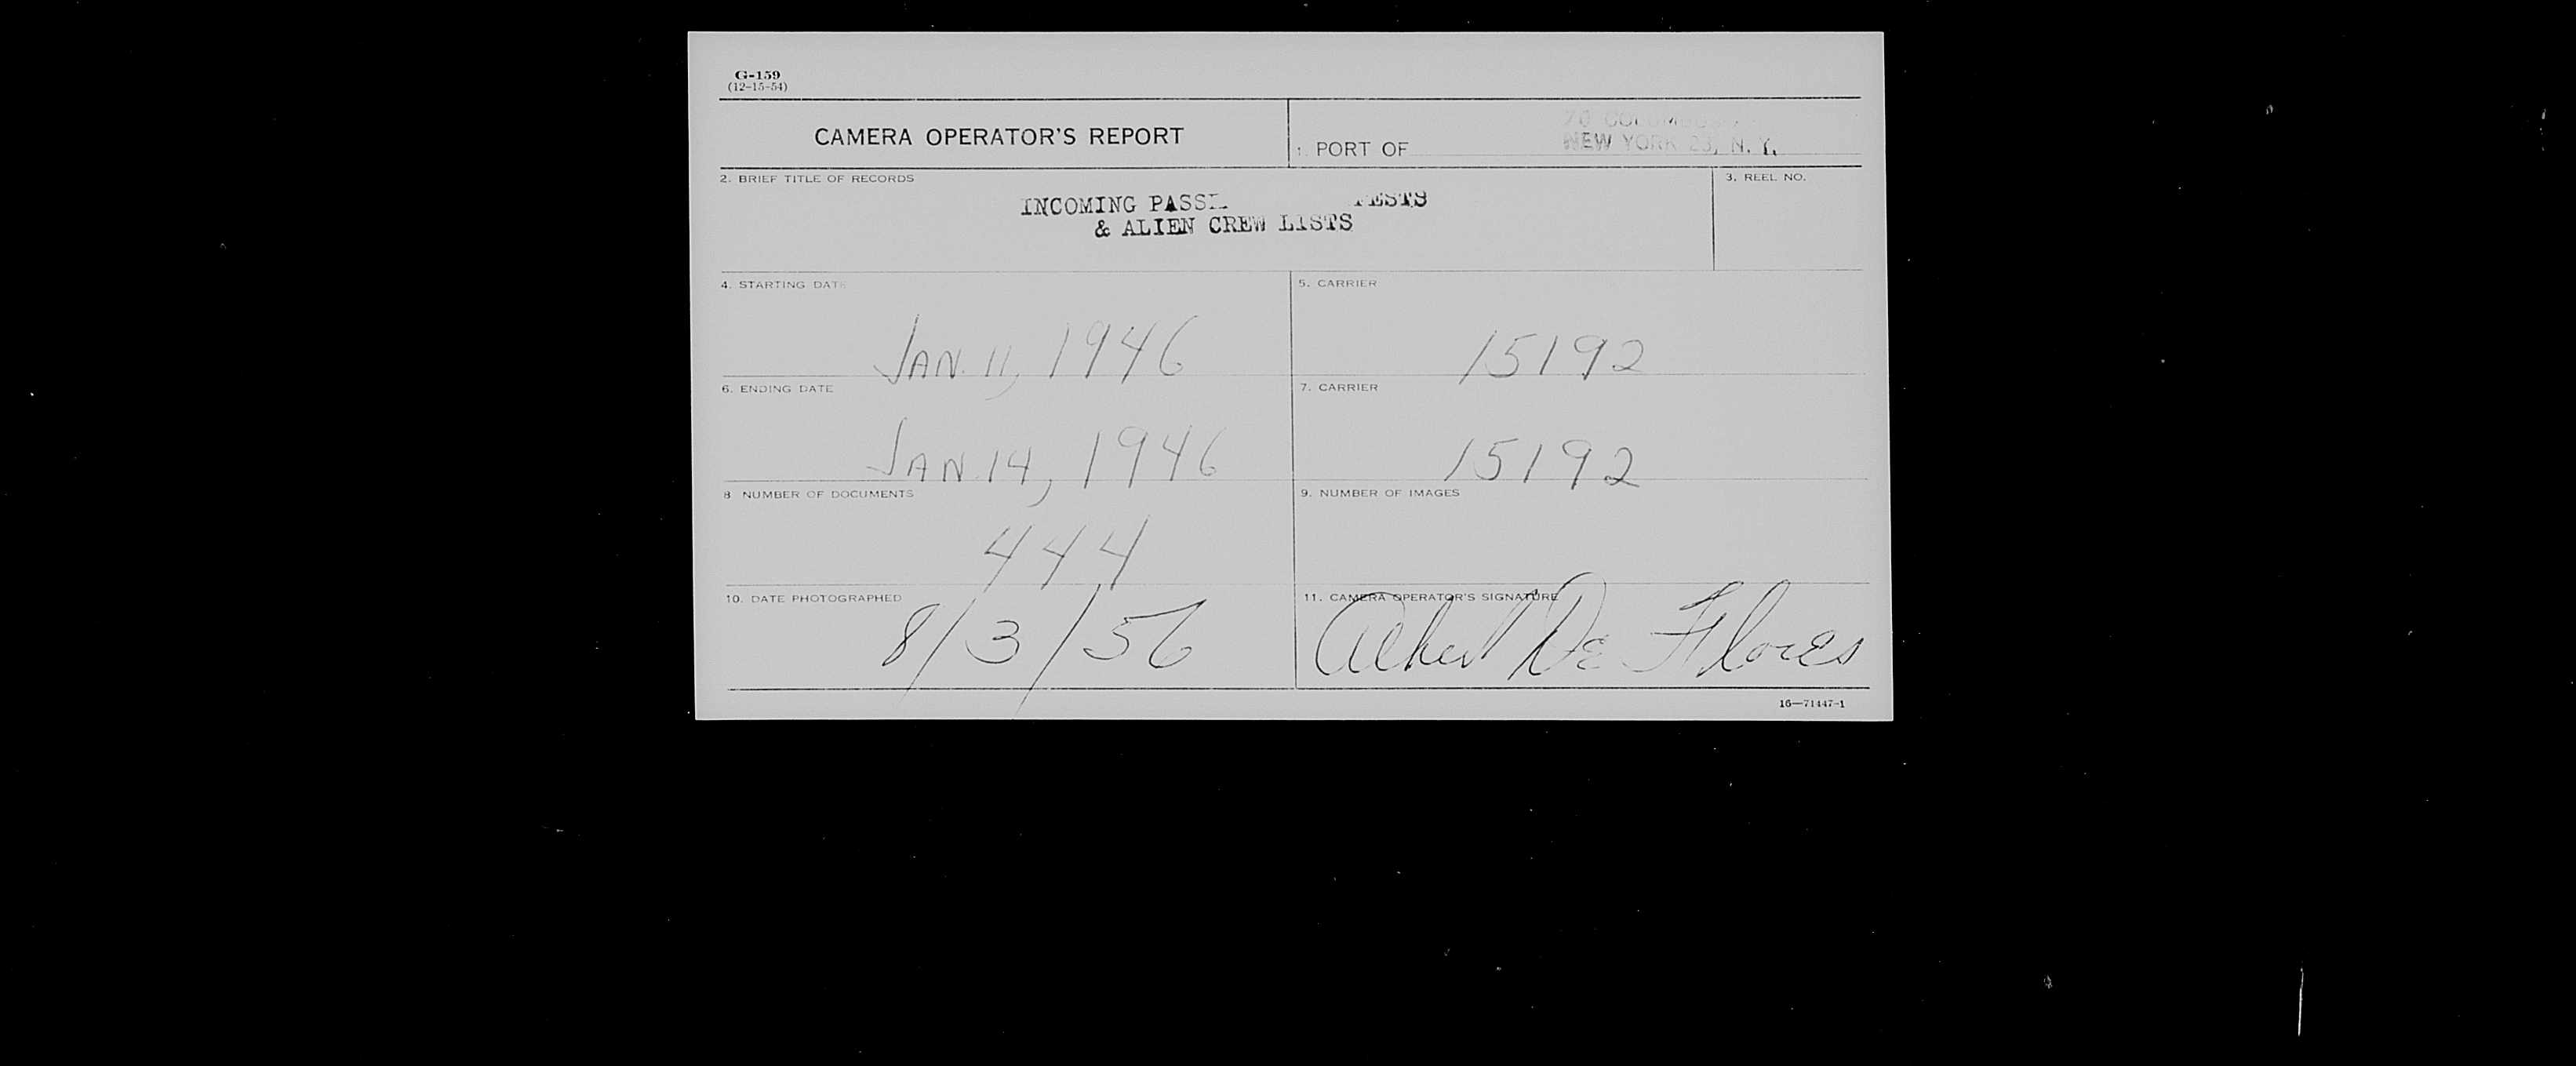 G-159
(12-15-54)
CAMERA OPERATOR'S REPORT
1. PORT OF
NEW YORK 23, N. Y.
2. BRIEF TITLE OF RECORDS
3. REEL NO.
INCOMING
& ALIEN CREW LISTS
4. STARTING DATE
5. CARRIER
JAN. 11, 1946
15192
6. ENDING DATE
7. CARRIER
JAN. 14, 1946
15192
8 NUMBER OF DOCUMENTS
9. NUMBER OF IMAGES
444
10. DATE PHOTOGRAPHED
11. CAMERA OPERATOR'S SIGNATURE
8/3/56
Albert De Flores
16—71447-1